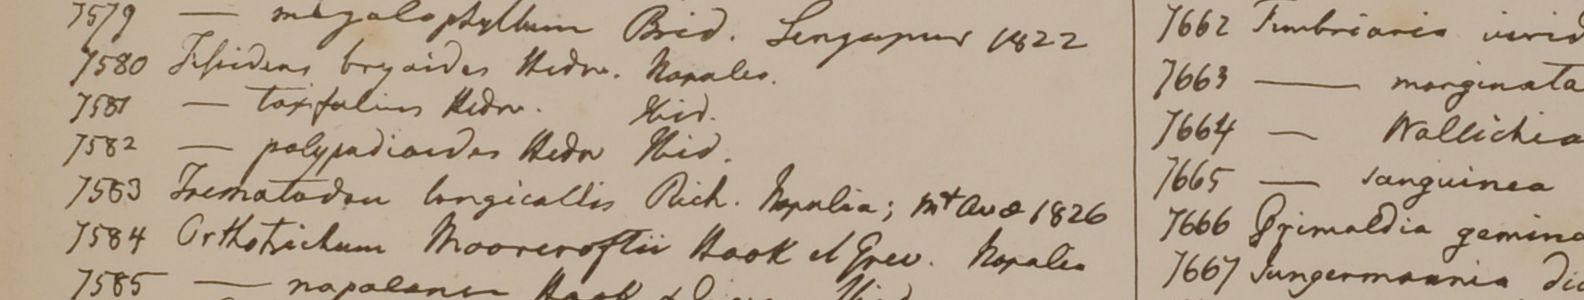 7579 — megalophyllum Brid. Singapur 1822
7580 Fissidens bryoides Hedw. Napalia.
7581 — taxifolius Hedw. Ibid.
7582 — polypodioides Hedw Ibid.
7583 Trematodon longicollis Rich. Napalia; Mt Ava 1826
7584 Orthotrichum Moorcroftii Hook et Grev. Napalia
7585 — napalense Hook Ibid
7662 Fimbriaria virid
7663 — marginata
7664 — Wallichia
7665 — sanguinea
7666 Grimaldia gemina
7667 Jungermannia dic